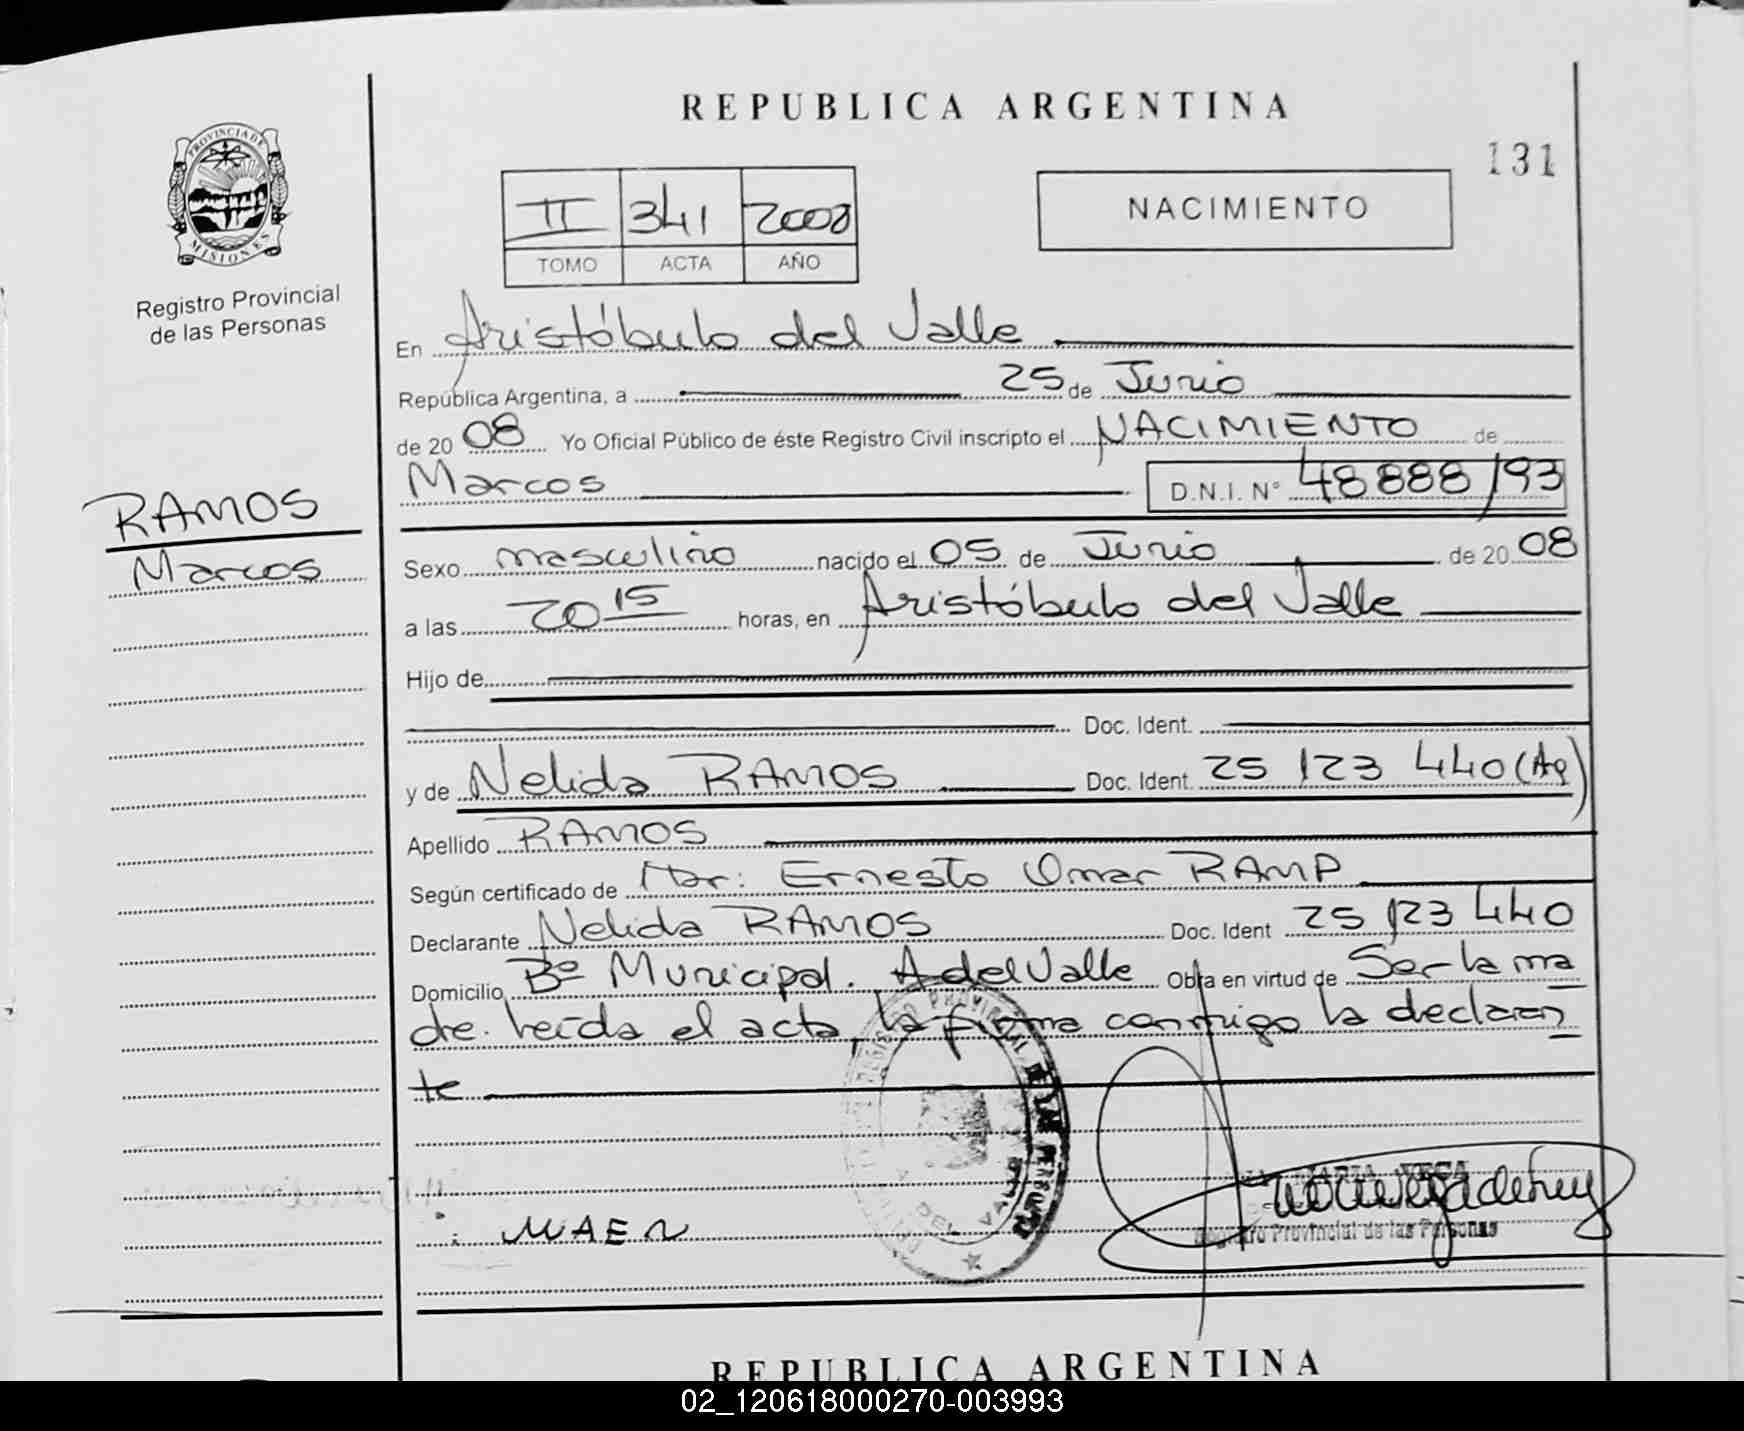 REPUBLICA ARGENTINA
131
PROVINCIA DE
MISIONES
Registro Provincial
de las Personas
II 341 2008
TOMO ACTA AÑO
NACIMIENTO
En Aristóbulo del Valle
República Argentina, a 25 de Junio
de 20 08 Yo Oficial Público de éste Registro Civil inscripto el NACIMIENTO de
Marcos D.N.I. Nº 48 888 193
RAMOS
Marcos
Sexo masculino nacido el 05 de Junio de 20 08
a las 20 15 horas, en Aristóbulo del Valle
Hijo de
Doc. Ident.
y de Nelida RAMOS Doc. Ident. 25 123 440 (Aq)
Apellido RAMOS
Según certificado de Ernesto Omar RAMP
Declarante Nelida RAMOS Doc. Ident 25 123 440
Domicilio Bº Municipal. A del Valle Obra en virtud de Ser la ma
dre. leída el acta, la firma conmigo la declaran
te
Registro Provincial de las Personas
REPUBLICA ARGENTINA
02_120618000270-003993